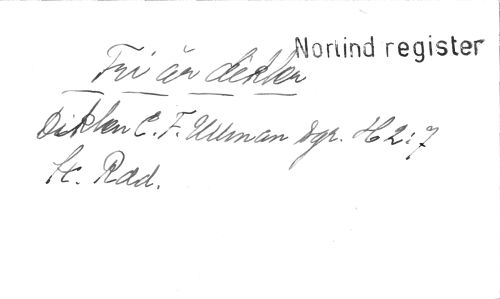 Norlind register
Fri är dikten
Dikten C. F. Ullman Sgr. H 2:7
St. Rad.